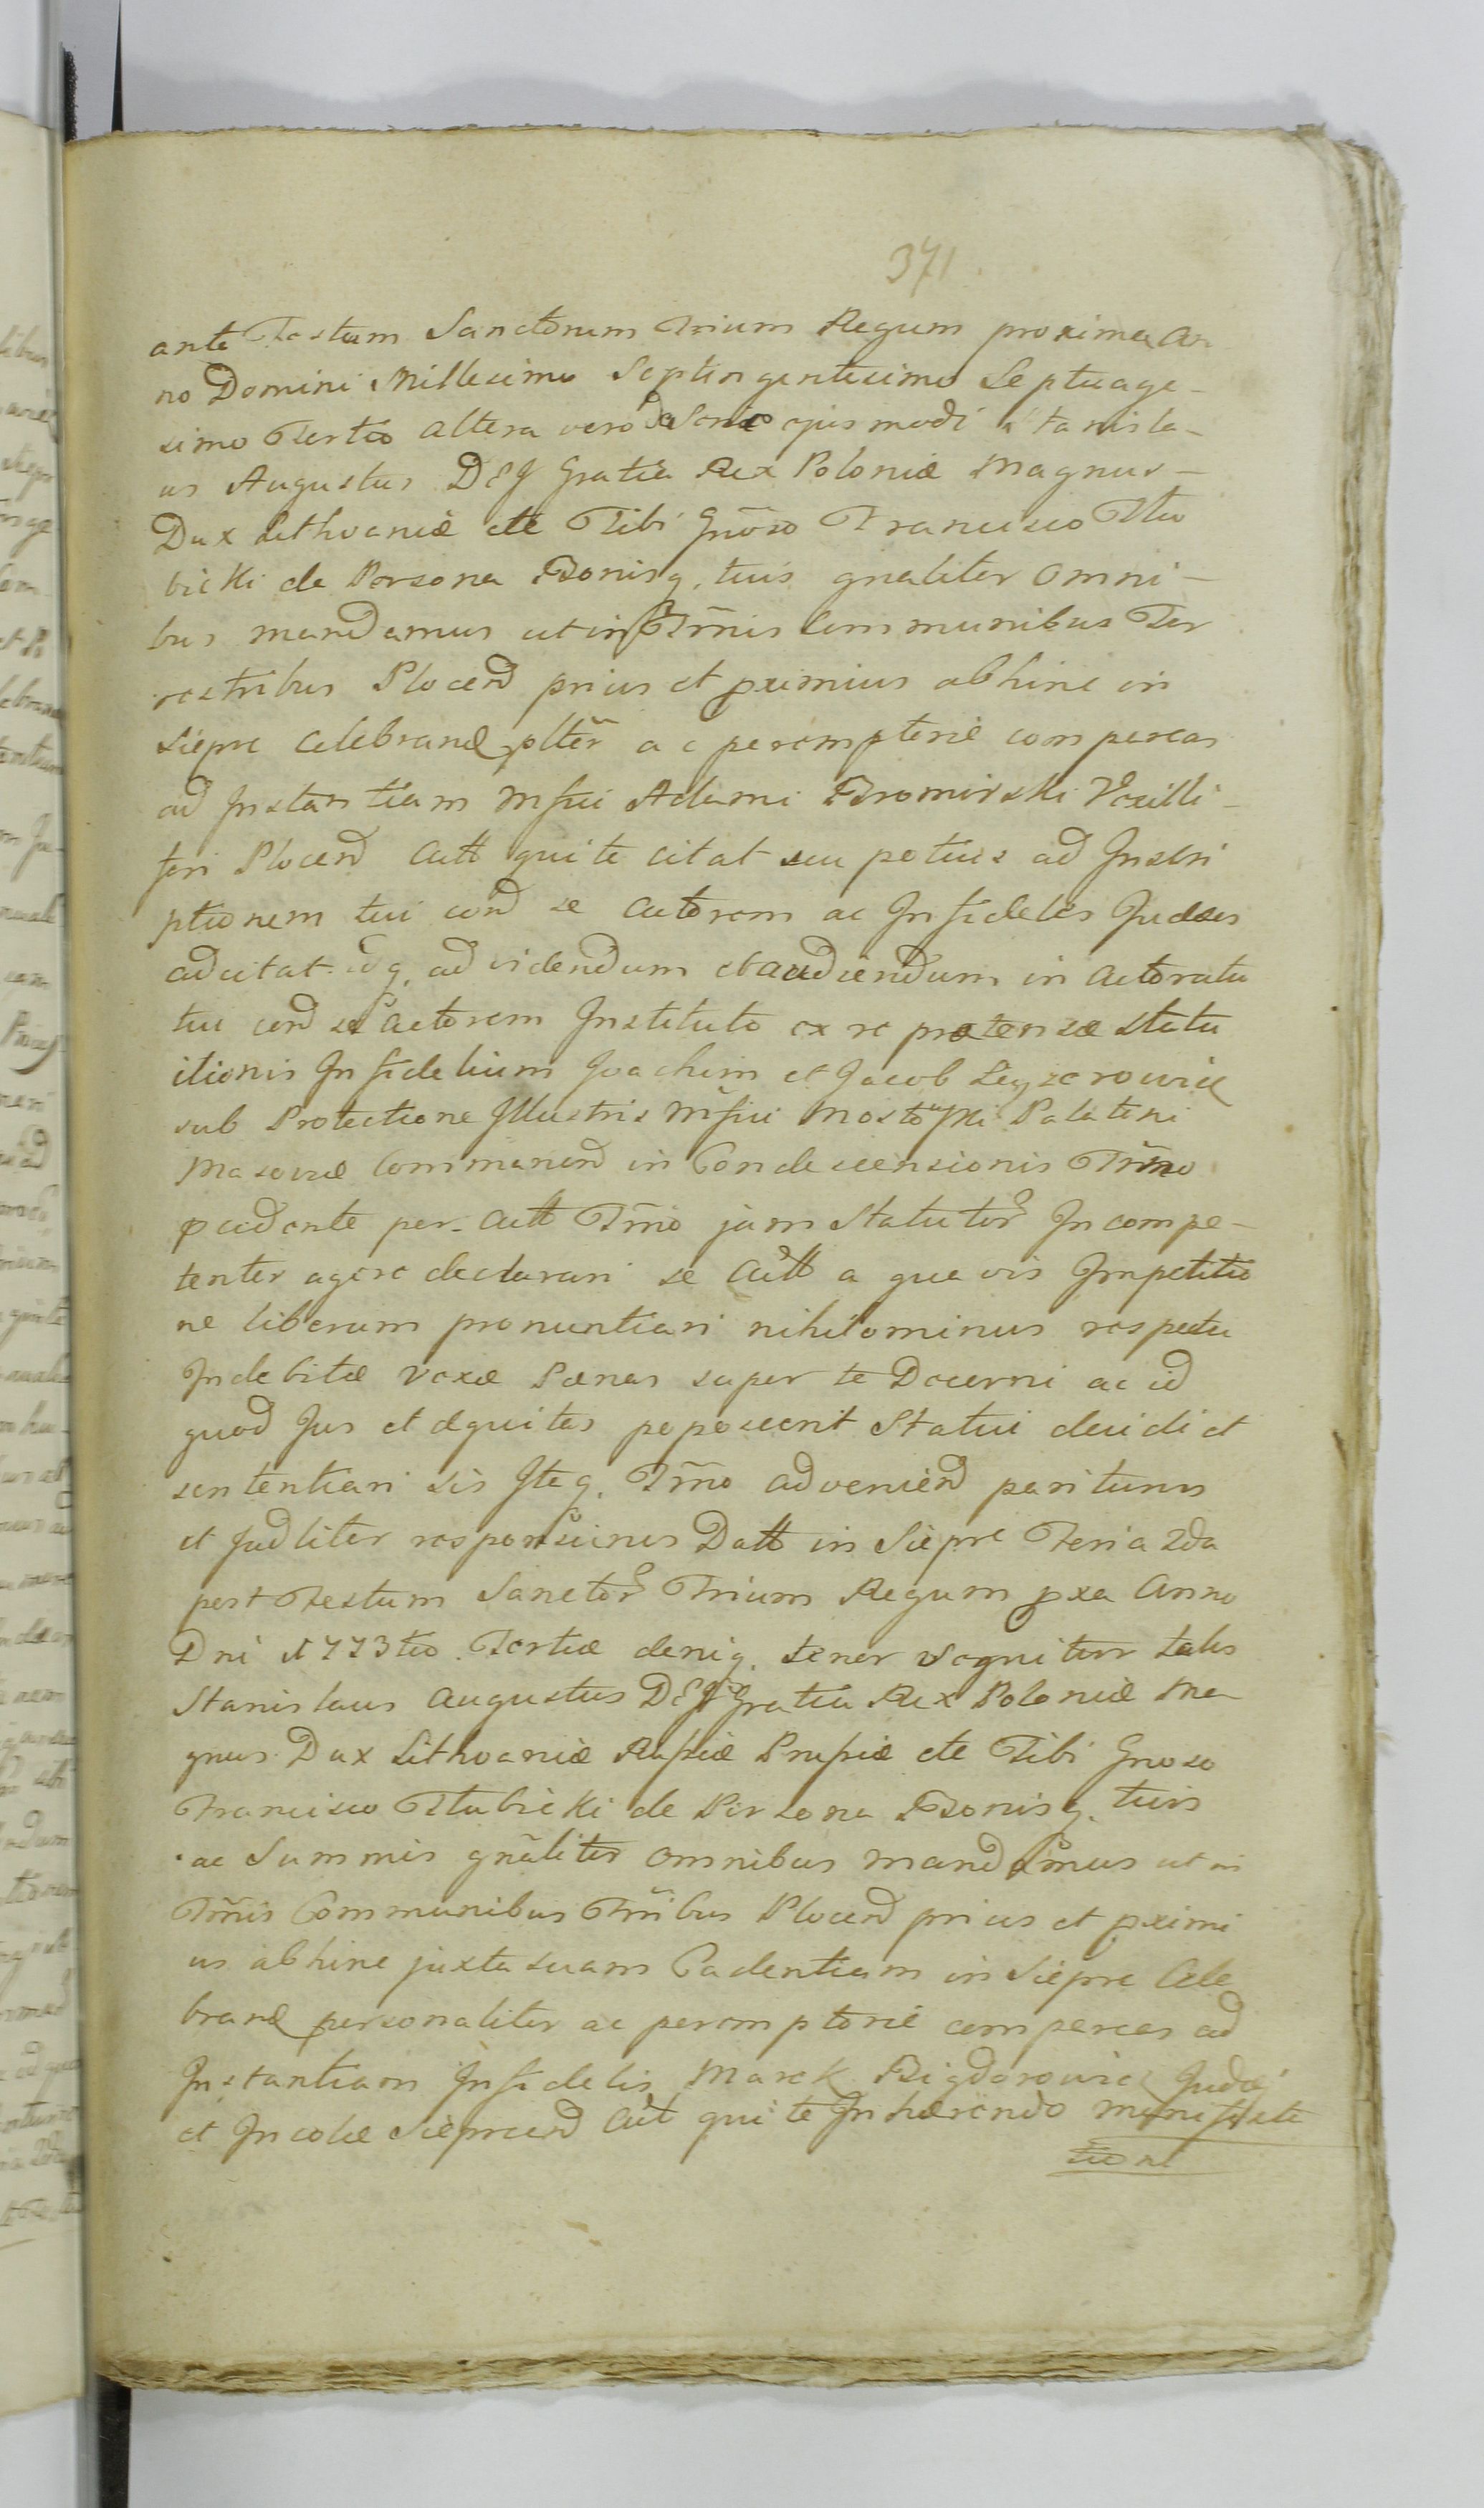 371.
ante Festum Sanctorum Trium Regum proxima An
no Domini Millesimo Septingentesimo Septuage-
simo Tertio altera vero de Serie ejusmodi Stanisla-
us Augustus DEJ Gratia Rex Poloniæ Magnus-
Dux Lithvaniæ ete Tibi Gnõso Francisco
bicki de Persona Bonisq. tuis gnaliter omni-
bus mandamus ut in Trm̃nis Communibus Ter
restribus Plocen̄d prius et pximius abhinc in
Siepre Celebrand pltẽr ac peremptorie compareas
ad Instantiam Mfici Adami Bromirski Vexilli-
feri Plocend Actt qui te citat seu potius ad Inscri
ptionem tui cord se Actorem ac Infideles Judæos
adcitat. idq. ad videndum et audiendum in Actoratu
tui cord se Actorem Instituto ex re prætensæ Statu
itionis Infidelium Joachim et Jacob Leyzerowicz
sub Protectione Illustris Mfici Mostowski Palatini
Masoviæ Commanend in Condescensionis Trm̃no
pcedente per Actt Tm̃no jam Statutor Incompe-
tenter agere declarari se Actt a quavis Impetitio
ne liberum pronuntiari nihilominus respectu
Indebitæ vexæ Pænas super te Decerni ac id
quod Jus et æquitas poposcerit Statui decidi et
sententiari sis Iteq. Tm̃no advenien̄d pariturus
et Judliter responsurus Datt in Siepre Feria 2da
post Festum Sanctor Trium Regum pxa Anno
Dni 1773tio. Tertiæ deniq. tenor sequitur talis
Stanislaus Augustus DEJ Gratia Rex Poloniæ Ma
gnus Dux Lithvaniæ Rusſiæ Prusſiæ ete Tibi Gnoso
Francisco bicki de Persona Bonisq. tuis
ac Summis gnãliter omnibus mandamus ut in
Trm̃nis Communibus Trr̃ibus Plocen̄d prius et pximi
us abhinc juxta suam Cadentiam in Siepre Cele
brand personaliter ac peremptorie compareas ad
Instantiam Infidelis Marek Bigdorowicz Judæi
et Incolæ Sieprcen̄d Actt qui te Inhærendo manifesta
tioni